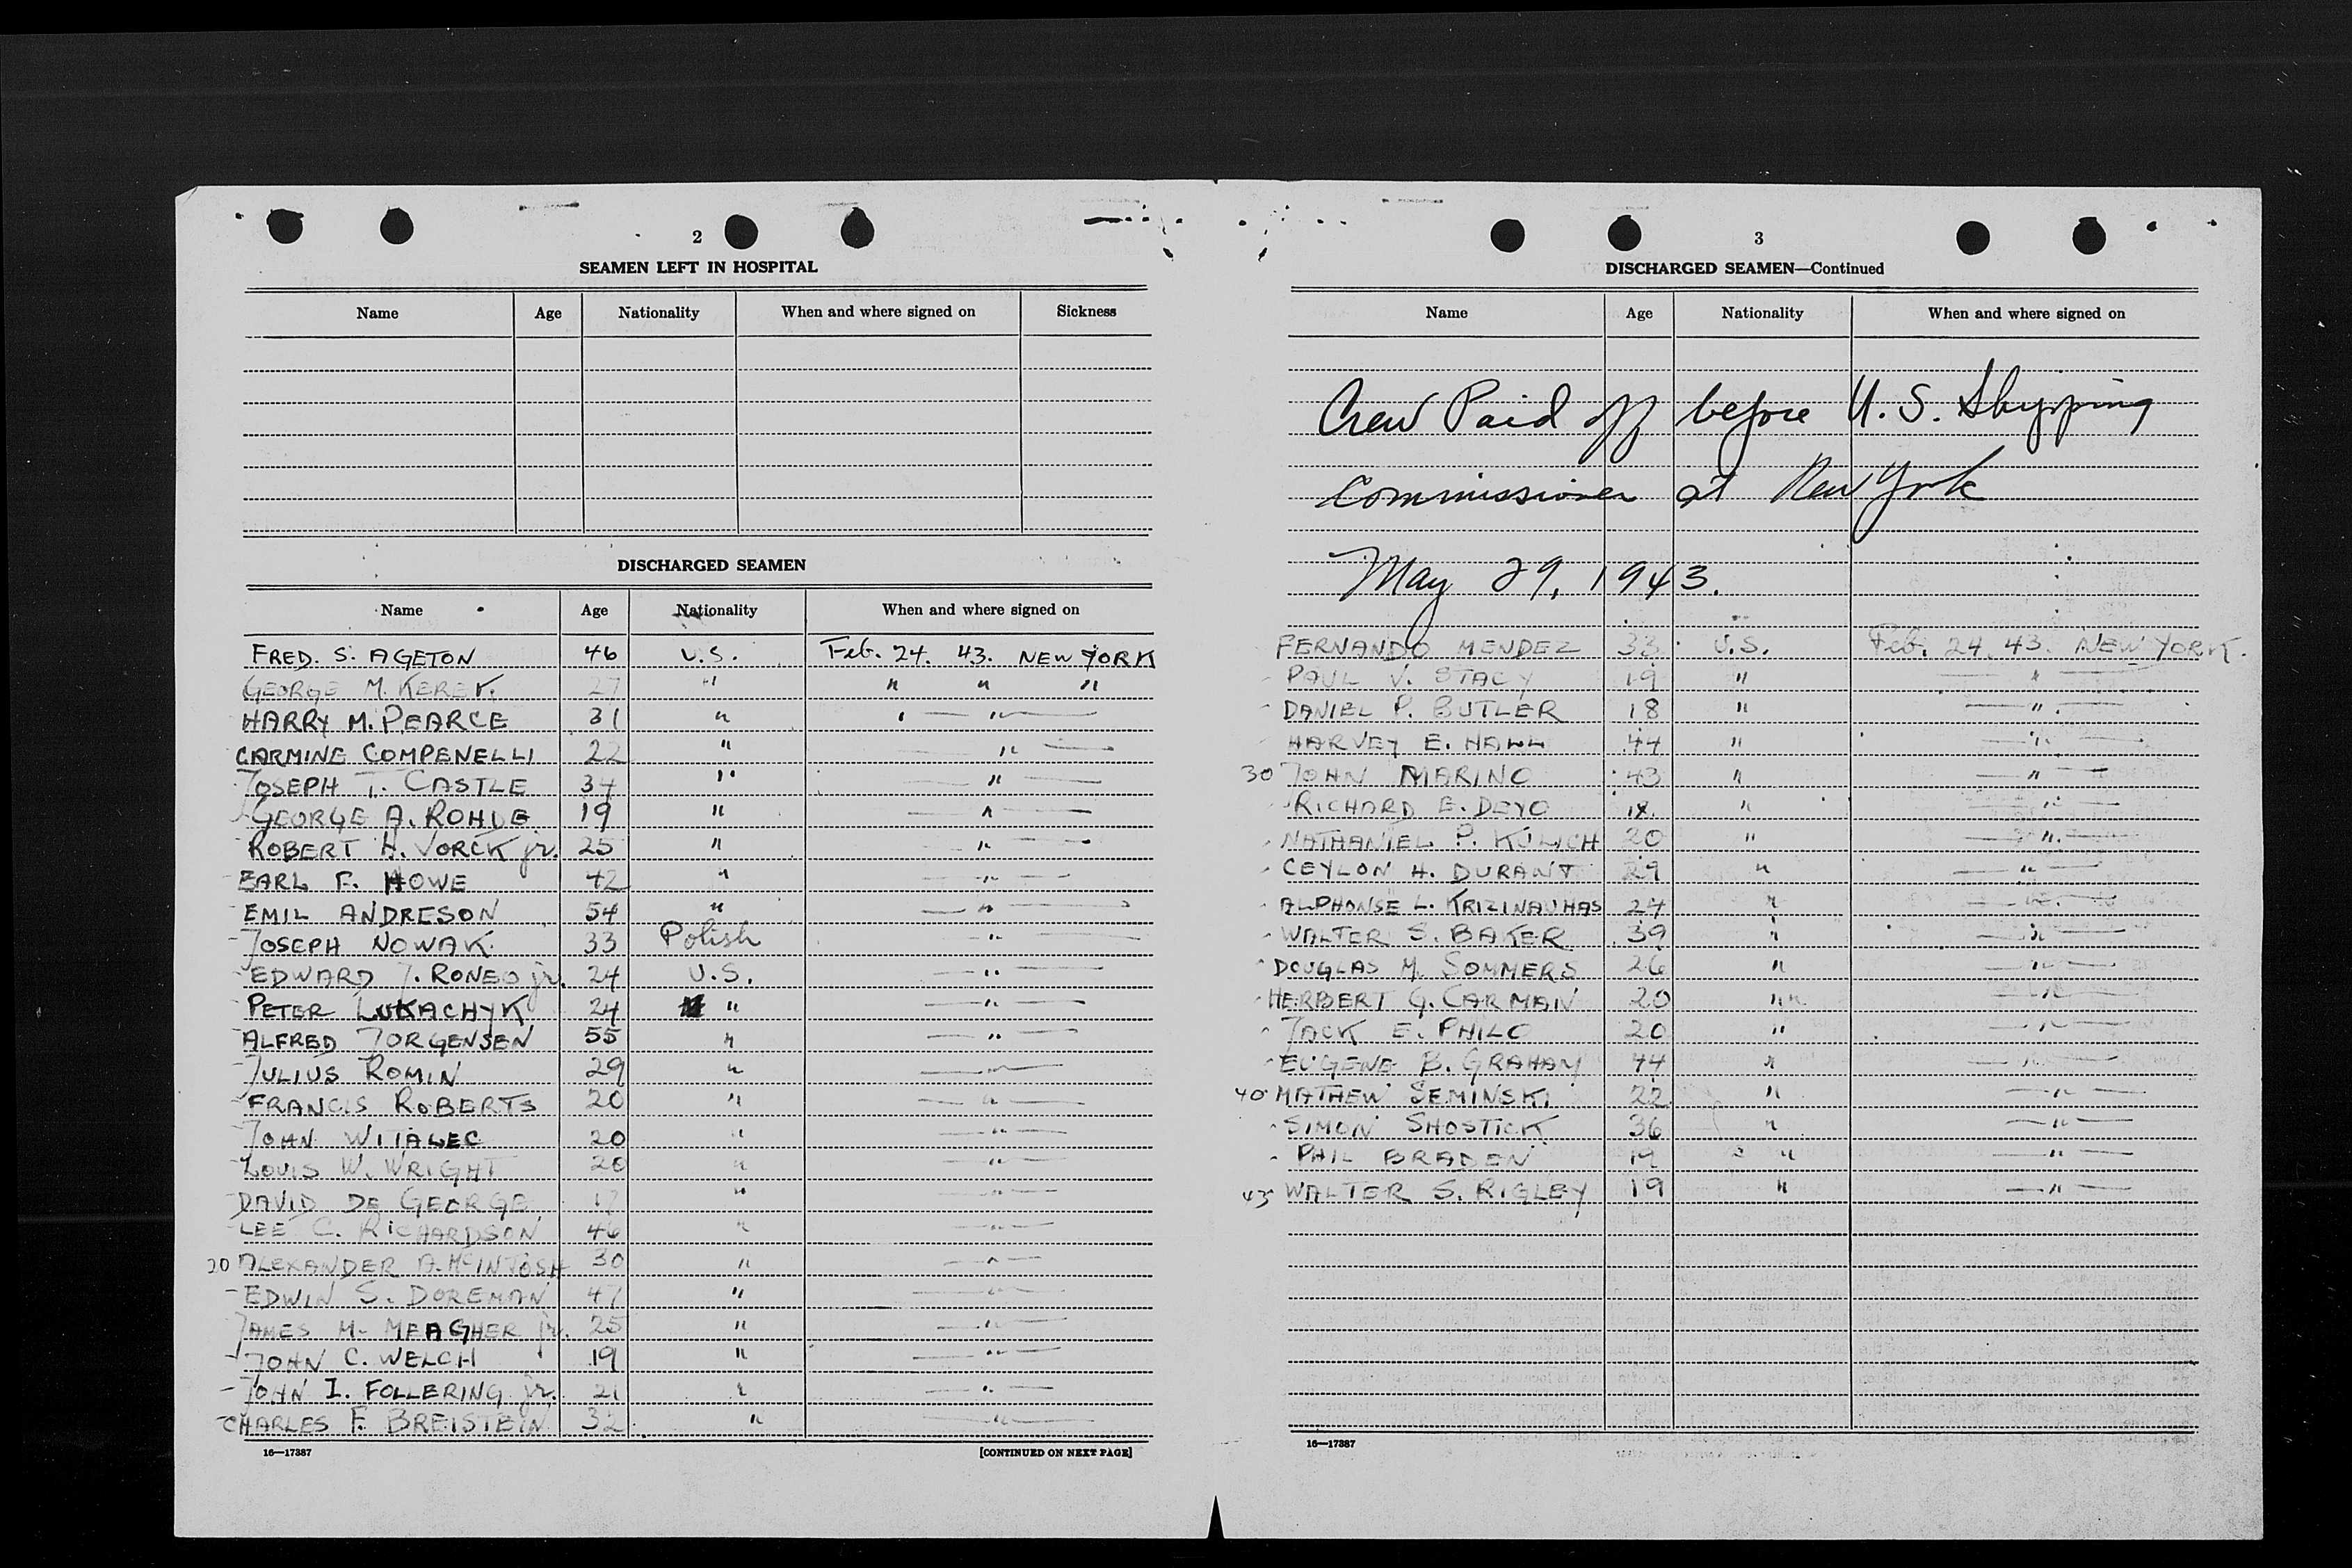 2
SEAMEN LEFT IN HOSPITAL
Name Age Nationality When and where signed on Sickness
DISCHARGED SEAMEN
Name Age Nationality When and where signed on
FRED. S. AGETON 46 U.S. Feb. 24. 43. NEW YORK
GEORGE M. KEREK. 27 " " " "
HARRY M. PEARCE 31 " " — " —
CARMINE COMPENELLI 22 " — " —
JOSEPH T. CASTLE 34 " — " —
GEORGE A. ROHDE 19 " — " —
ROBERT H. VORCK jr. 25 " — " —
EARL F. HOWE 42 " — " —
EMIL ANDRESON 54 " — " —
JOSEPH NOWAK. 33 Polish — " —
EDWARD J. RONEO jr. 24 U.S. — " —
PETER LUKACHYK 24 " — " —
ALFRED JORGENSEN 55 " — " —
JULIUS ROMIN 29 " — " —
FRANCIS ROBERTS 20 " — " —
JOHN WITALEC 20 " — " —
LOUIS W. WRIGHT 20 " — " —
DAVID DE GEORGE 17 " — " —
LEE C. RICHARDSON 46 " — " —
20 ALEXANDER A. McINTOSH 30 " — " —
EDWIN S. DOREMAN 47 " — " —
JAMES M. MEAGHER jr. 25 " — " —
JOHN C. WELCH 19 " — " —
JOHN I. FOLLERING jr. 21 " — " —
CHARLES F. BREISTEIN 32 " — " —
16—17387 [CONTINUED ON NEXT PAGE]
3
DISCHARGED SEAMEN—Continued
Name Age Nationality When and where signed on
Crew Paid off before U.S. Shipping
Commissioner at New York
May 29, 1943.
FERNANDO MENDEZ 33 U.S. Feb. 24. 43. NEW YORK.
PAUL V. STACY 19 " — " —
DANIEL P. BUTLER 18 " — " —
HARVEY E. HALL 44 " — " —
30 JOHN MARINO 43 " — " —
RICHARD E. DEYO 18. " — " —
NATHANIEL P. 20 " — " —
CEYLON H. DURANT 29 " — " —
ALPHONSE L. KRIZINAUHAS 24 " — " —
WALTER S. BAKER 39 " — " —
DOUGLAS M. SOMMERS 26 " — " —
HERBERT G. CARMAN 20 " — " —
JACK E. PHILO 20 " — " —
EUGENE B. GRAHAM 44 " — " —
40 MATHEW SEMINSKI 22 " — " —
SIMON SHOSTICK 36 " — " —
PHIL BRADEN 19 " — " —
43 WALTER S. RIGLEY 19 " — " —
16—17387